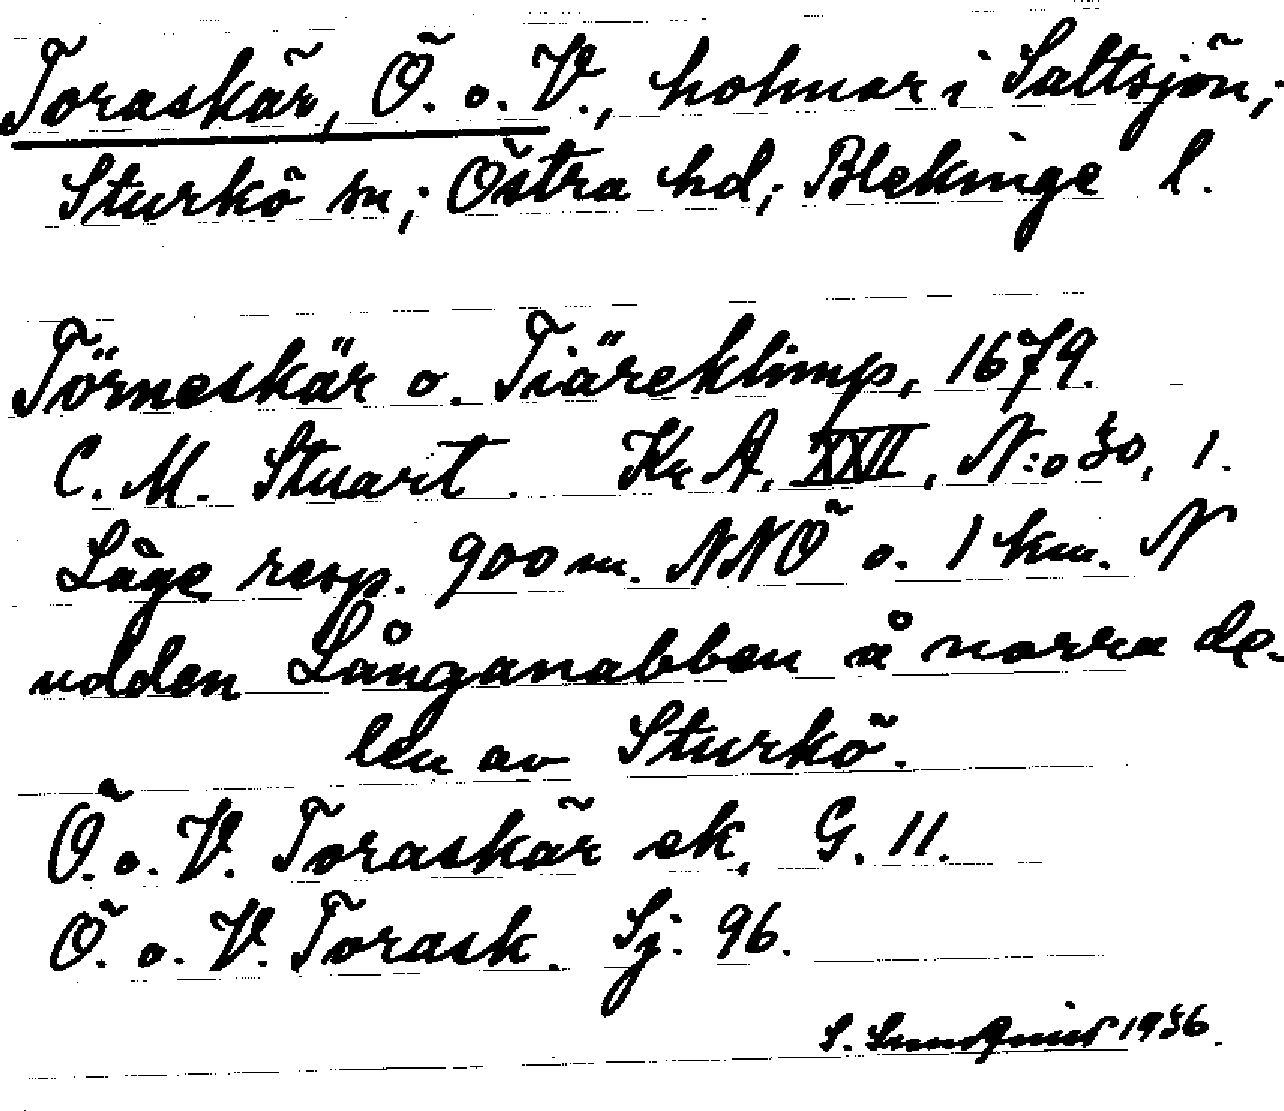 Toraskär, Ö. o. V., holmar i Saltsjön;
Sturkö sn; Östra hd; Blekinge l.
Törneskär o. Tiäreklimp, 1679.
C. M. Stuart. Kr A. XXII, N:o 30, 1.
Läge resp. 900 m. NNÖ o. 1 km. N
udden Långanabben å norra de-
len av Sturkö.
Ö. o. V. Toraskär ek. G. 11.
Ö. o. V. Torask. Sj. 96.
S. Lundqvist 1936.